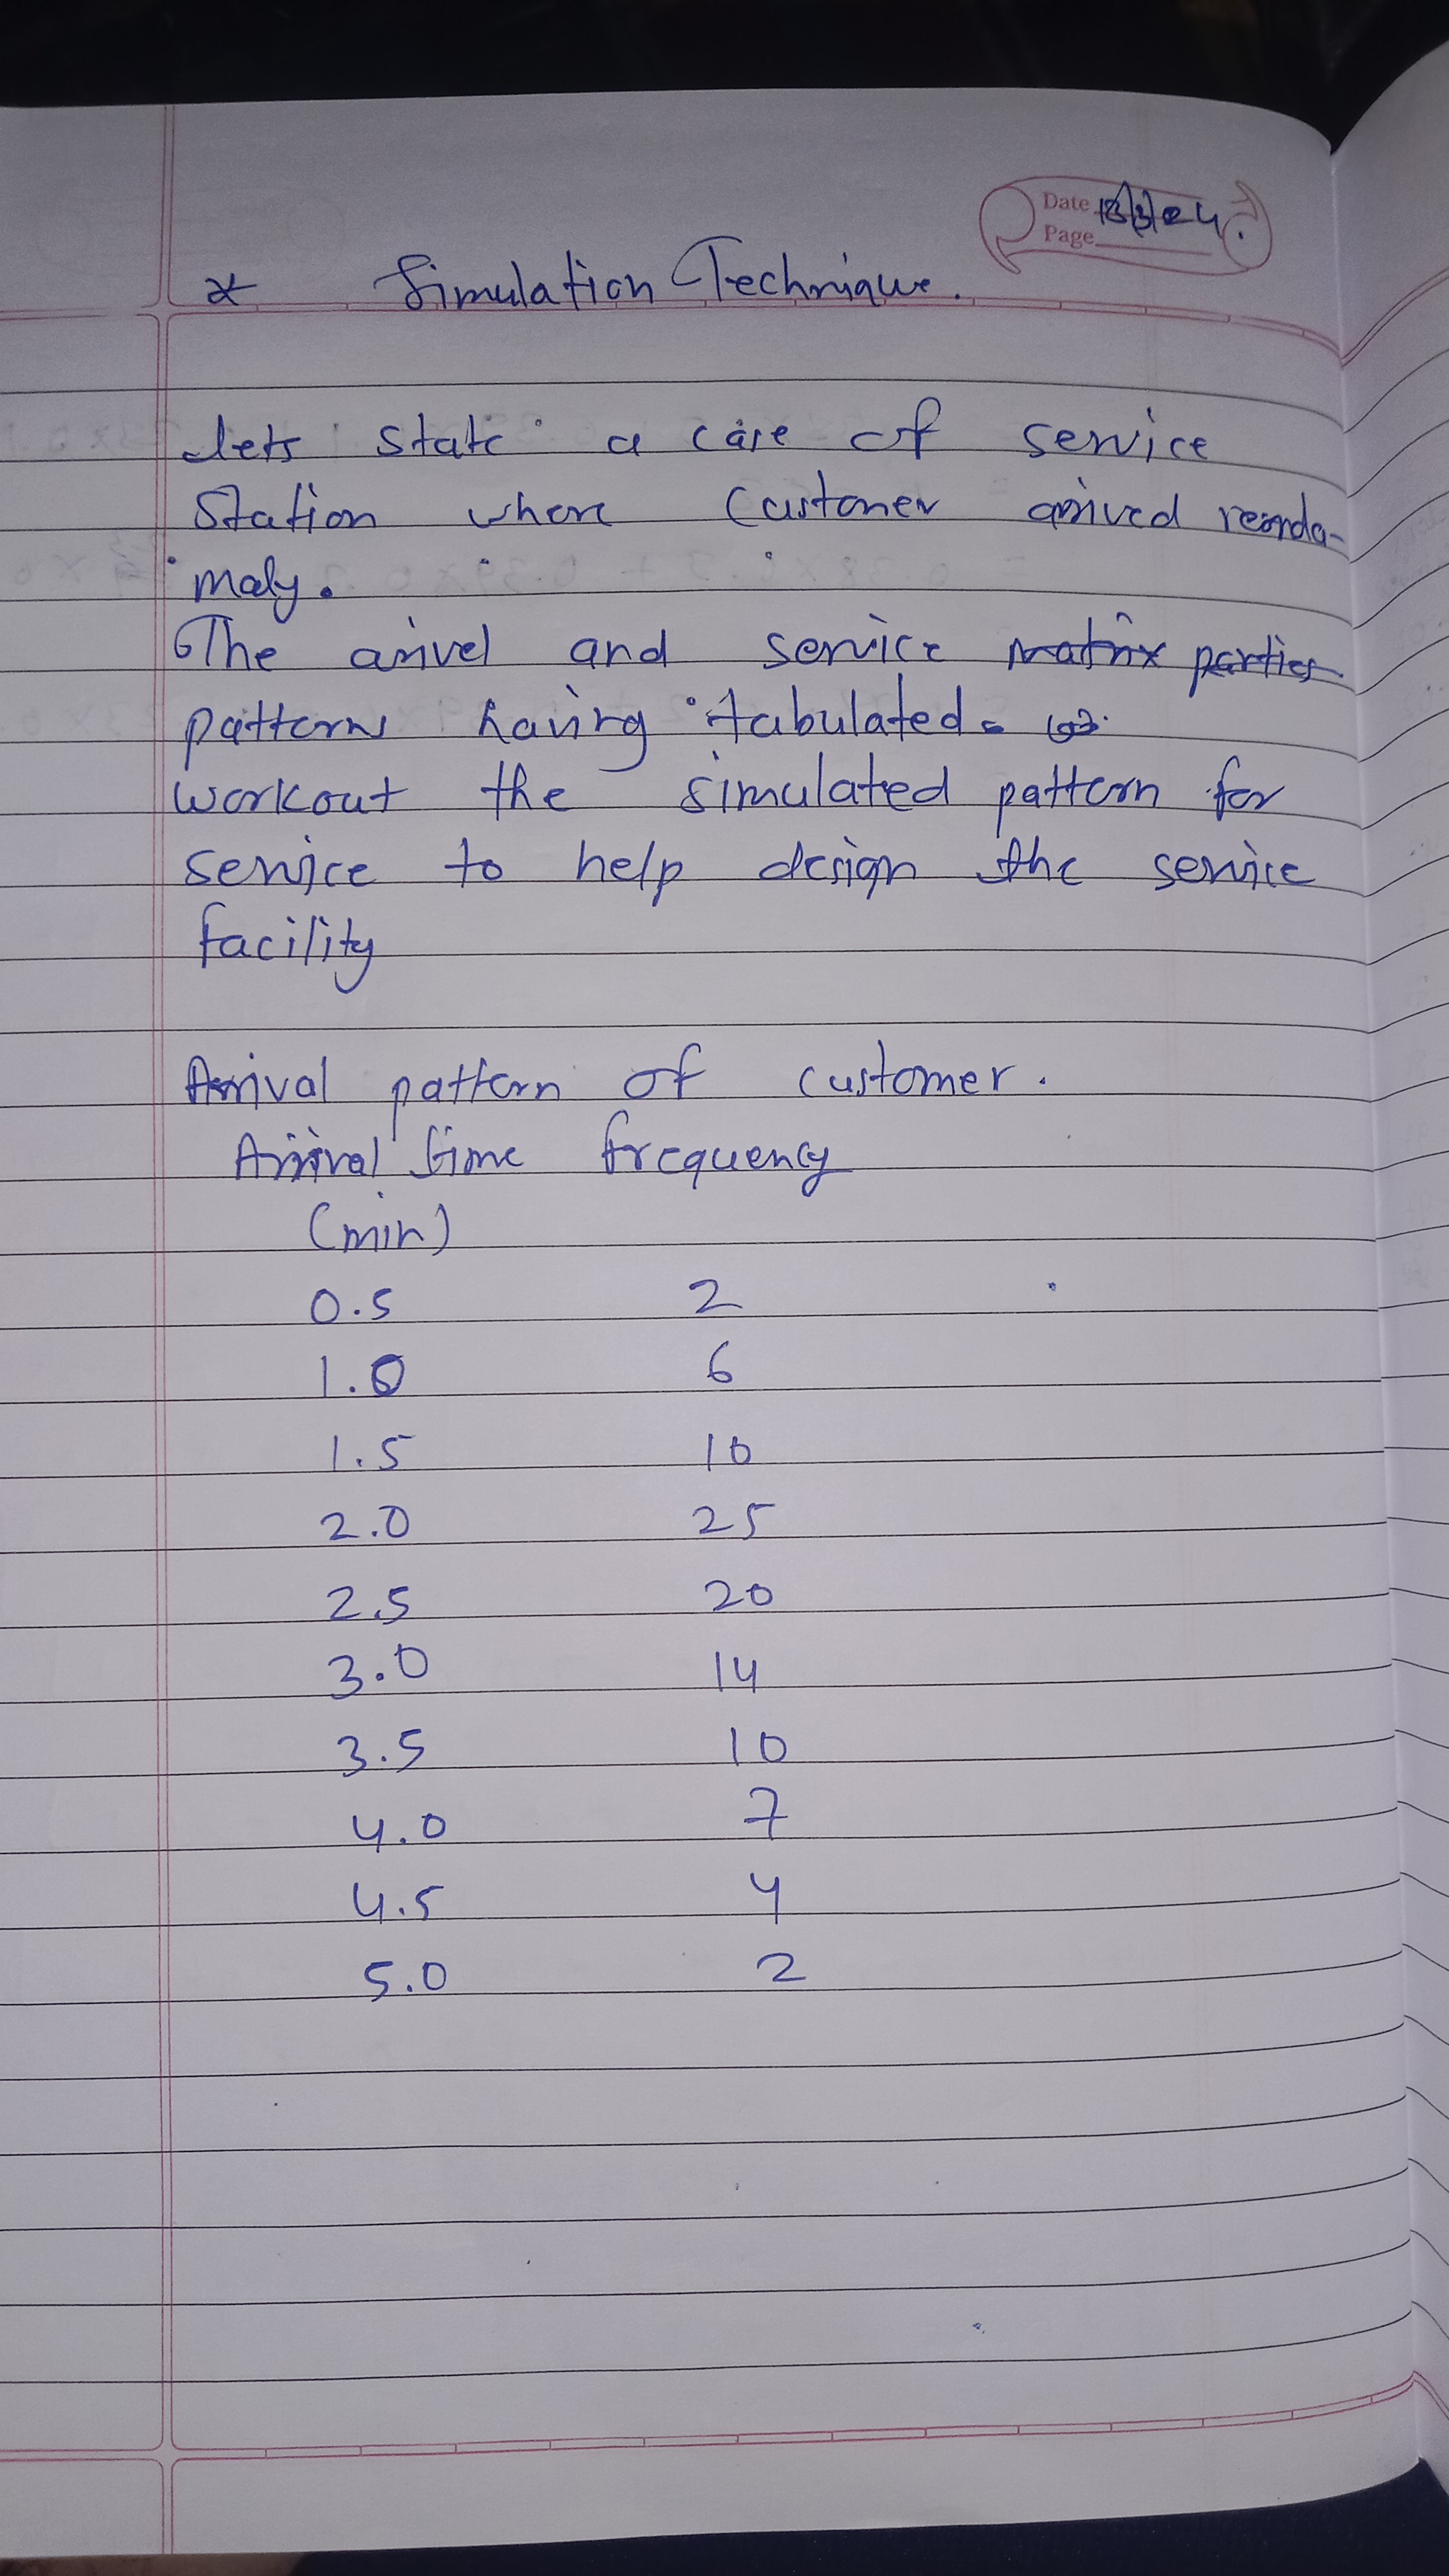 Date 13/3/24.
Page
* Simulation Technique.
lets state a case of service
Station where Customer arrived reanda-
maly.
The arivel and service matrix parties
patterns having tabulated.
workout the simulated pattern for
service to help design the service
facility
Arrival pattern of customer.
Arrival time frequency
(min)
0.5 2
1.0 6
1.5 10
2.0 25
2.5 20
3.0 14
3.5 10
4.0 7
4.5 4
5.0 2